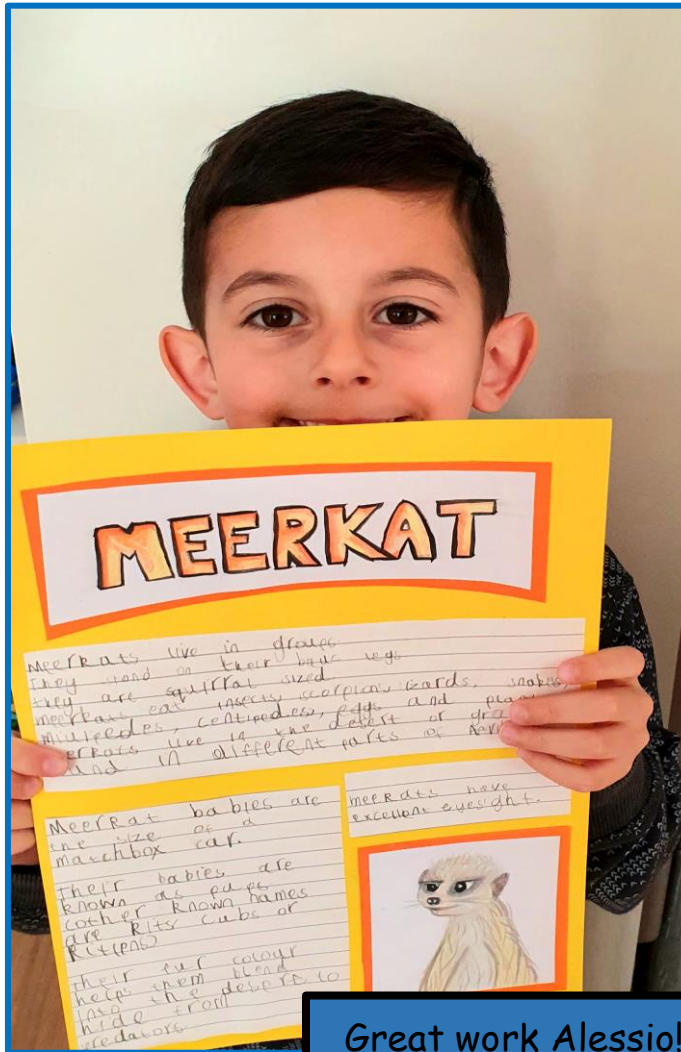 MEERKAT
Meerkats live in groups
They stand on their back legs
they are squirral sized
meerkats eat insects, scorpions, lizards, snakes,
millipedes, centipedes, eggs and
live in the desert or
and in different parts of
Meerkat babies are
the size of a
matchbox car.
Their babies are
known as pups
(other known names
are Kits Cubs or
Kittens)
Their fur colour
helps them blend
into the desert to
hide from
predators
meerkats have
excellent eyesight.
Great work Alessio!